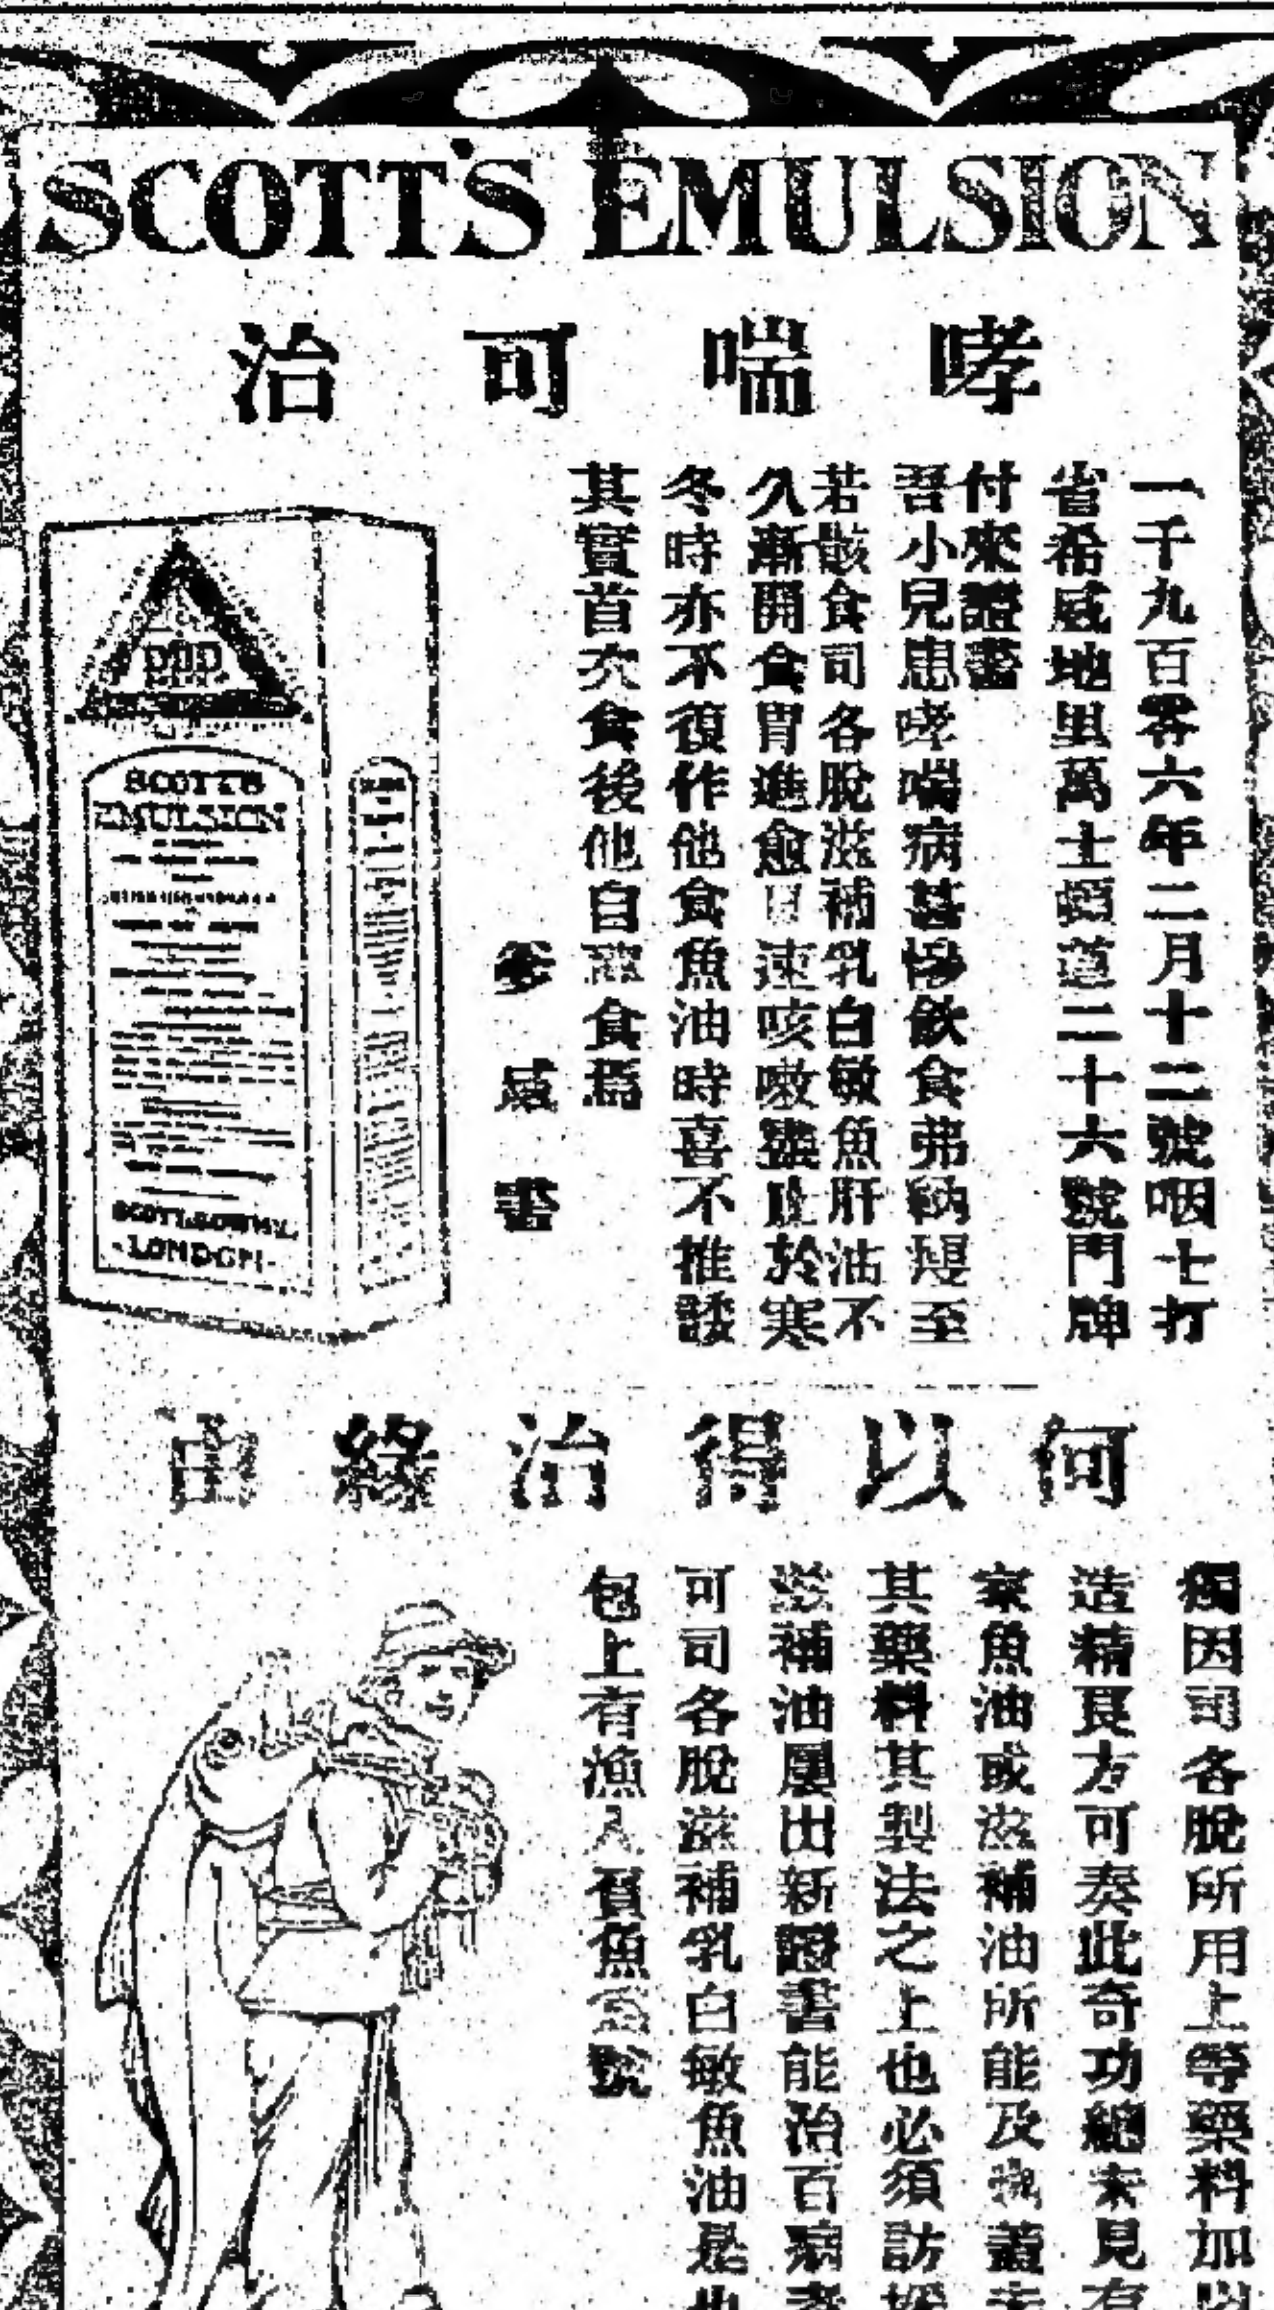 SCOTT'S EMULSION
哮喘可治
一千九百零六年二月十二號咽士打
省希威地里萬士頓道二十六號門牌
付來證書
吾小兒患哮喘病甚慘飲食弗納迨至
若骸食司各脫滋補乳白敏魚肝油不
久漸開食胃進愈且速咳嗽雖止於寒
冬時亦不復作他食魚油時喜不推諉
其實首次食後他自證食焉
參威書
SCOTT'S
EMULSION
LONDON
何以得治緣由
獨因司各脫所用上等藥料加以
造精良方可奏此奇功總未見有
家魚油或滋補油所能及我蓋
其藥料其製法之上也必須訪
滋補油屢出新證書能治百病者
可司各脫滋補乳白敏魚油是也
包上有漁人負魚為號